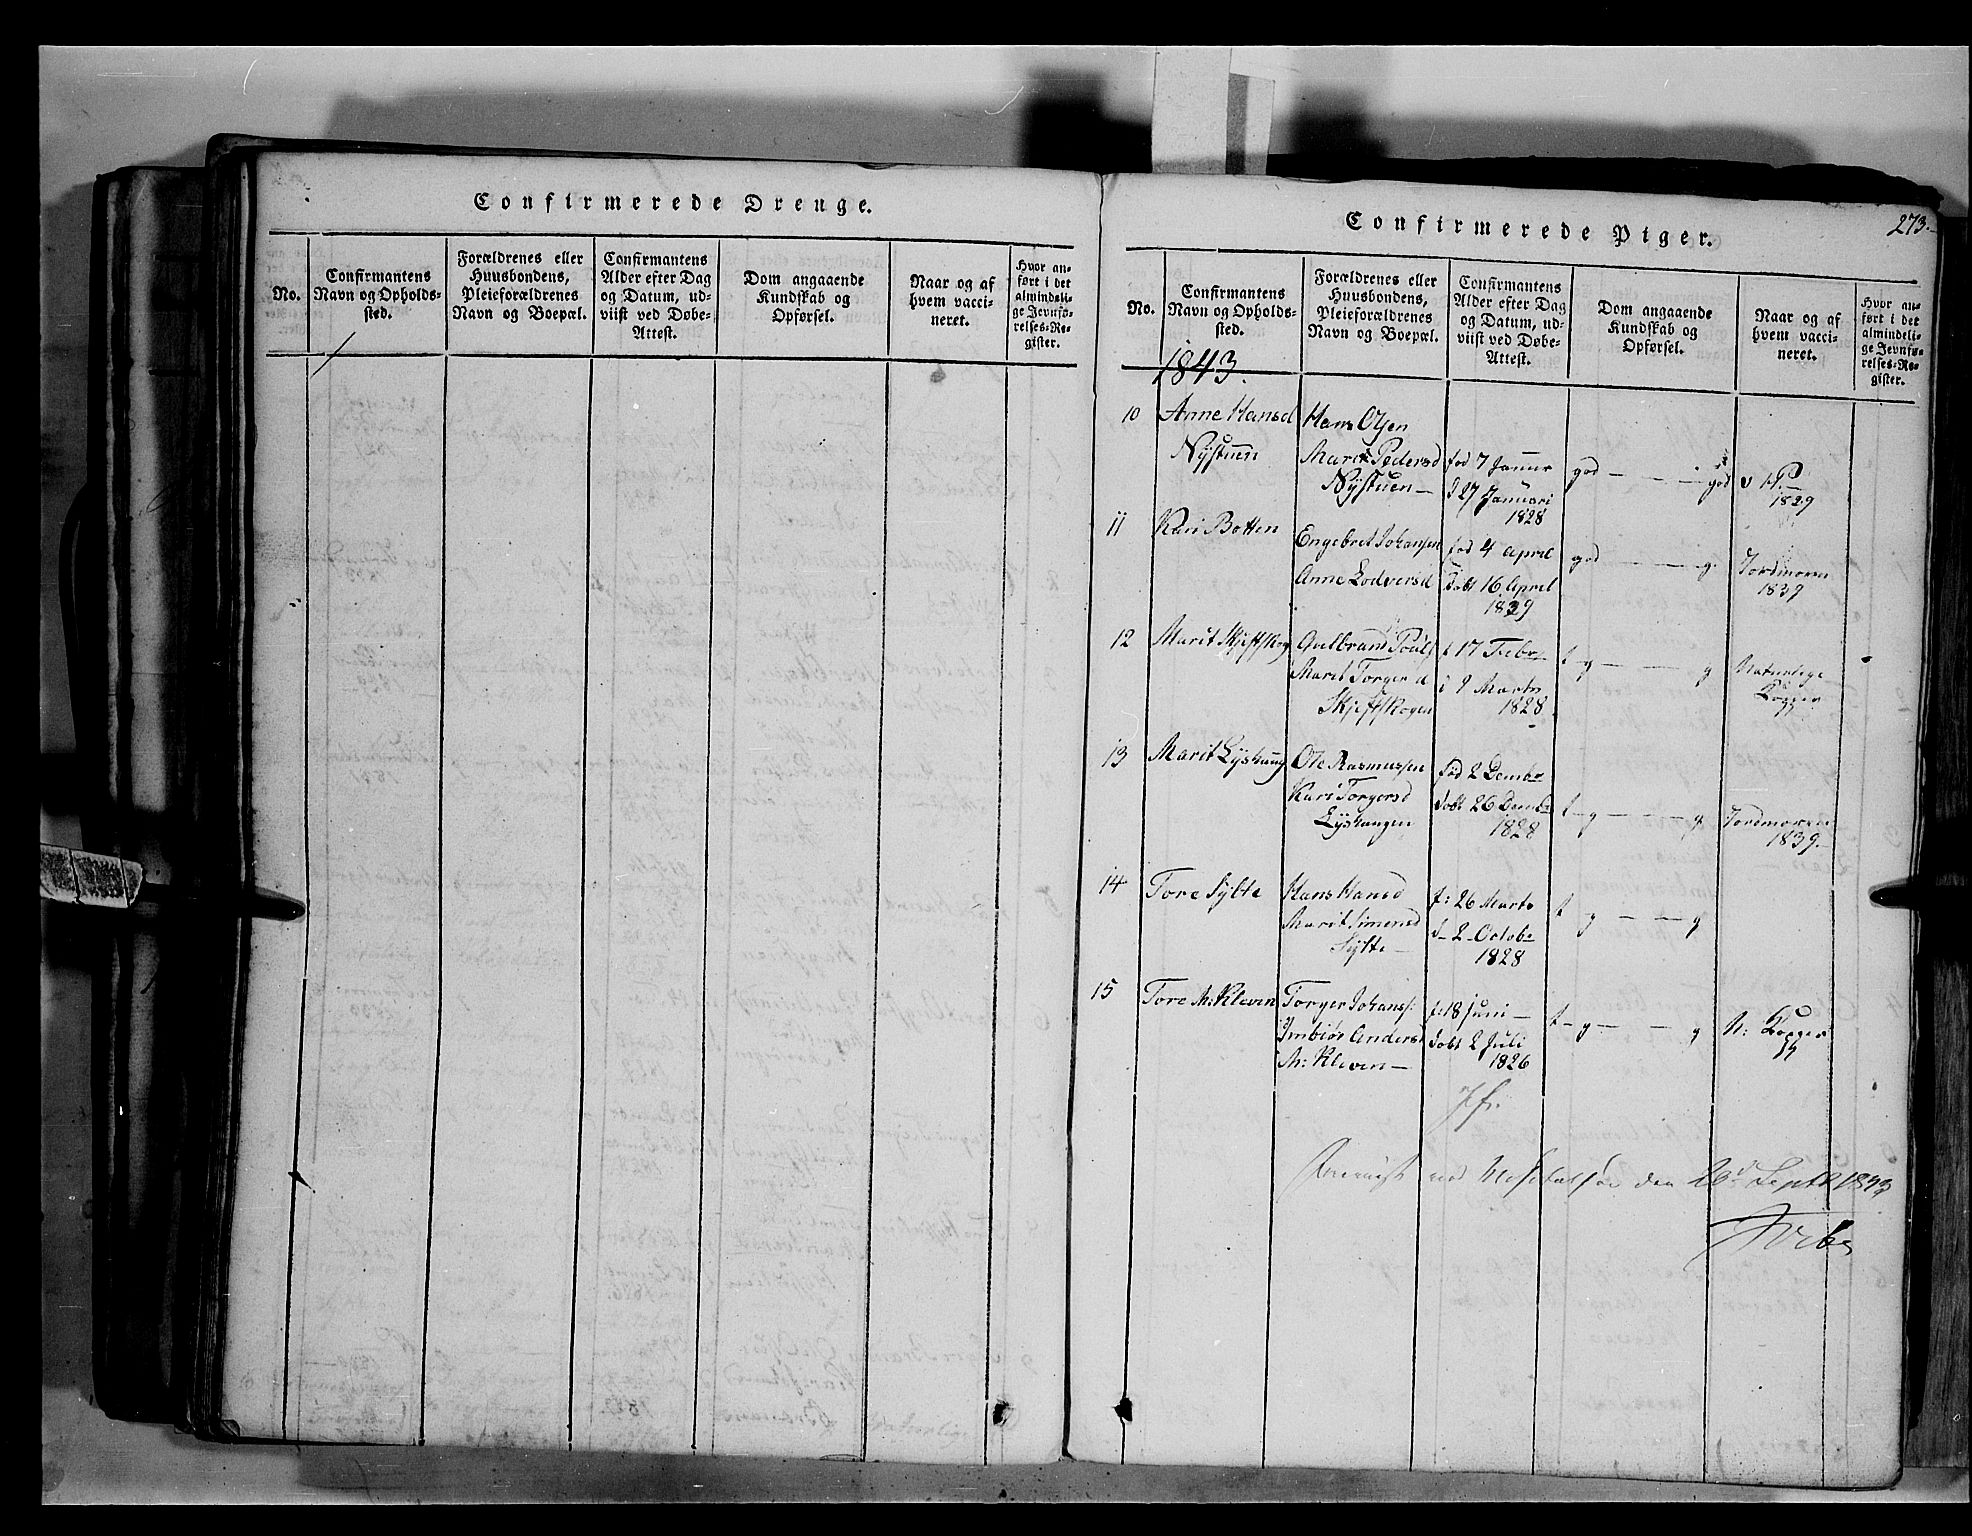 Confirmerede Drenge.
No.
Confirmantens
Navn og Opholds-
sted.
Forældrenes eller
Huusbondens,
Pleieforældrenes
Navn og Boepæl.
Confirmantens
Alder efter Dag
og Datum, ud-
viist ved Døbe-
Attest.
Dom angaaende
Kundskab og
Opførsel.
Naar og af
hvem vacci-
neret.
Hvor an-
ført i det
almindeli-
ge Jevnfø-
relses-Re-
gister.
Confirmerede Piger.
273.
No.
Confirmantens
Navn og Opholds-
sted.
Forældrenes eller
Huusbondens,
Pleieforældrenes
Navn og Boepæl.
Confirmantens
Alder efter Dag
og Datum, ud-
viist ved Døbe-
Attest.
Dom angaaende
Kundskab og
Opførsel.
Naar og af
hvem vacci-
neret.
Hvor an-
ført i det
almindeli-
ge Jevnfø-
relses-Re-
gister.
1843.
10 Anne Hansd
Nystuen
Hans Olsen
Marit Pedersd
Nystuen
fød 7 Januar
d 27 Januari
1828
god — — god
1829
11 Kari Botten
Engebret Johansen
Anne Lodversd
fød 4 April
Døbt 16 April
1829
god — — g
Jordmoren
1839
12 Marit Skjefskog
Gulbrand Pouls
Marit Torgersd
Skjefskogen
f 17 Febr
d 9 Marts
1828
t — g — — g
Naturlige
Kopper
13 Marit Lyshaug
Ole Rasmussen
Kari Torgersd
Lyshaugen
fød 2 Decmbr
døbt 26 Decmb
1828
t — g — — g
Jordmoren
1839.
14 Tore Sylte
Hans Hansd
Marit Simensd
Sylte —
f: 26 Marts
d — 2 — Octob
1828
t — g — — g
15 Tore M: Kleven
Torger Johans:
Imbiør Andersd
M: Kleven —
f: 18 Juni —
døbt 2 Juli
1826
t — g — — g
N: Kopper
den 26d Septb 1843